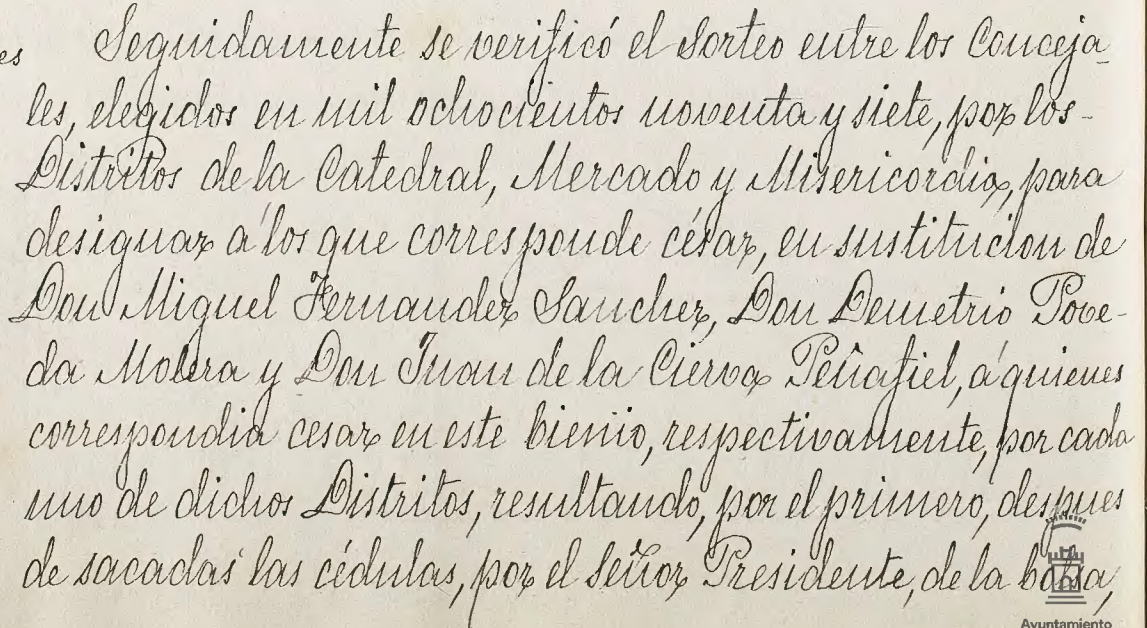 es
Seguidamente se verificó el Sorteo entre los Conceja-
les, elegidos en mil ochocientos noventa y siete, por los-
Distritos de la Catedral, Mercado y Misericordia, para
designar a los que corresponde césar, en sustitucion de
Don Miguel Fernandez Sanchez, Don Demetrio Pove-
da Molera y Don Juan de la Cierva Peñafiel, á quienes
correspondia cesar en este bienio, respectivamente, por cada
uno de dichos Distritos, resultando, por el primero, despues
de sacadas las cédulas, por el Señor Presidente, de la bolsa,
Ayuntamiento